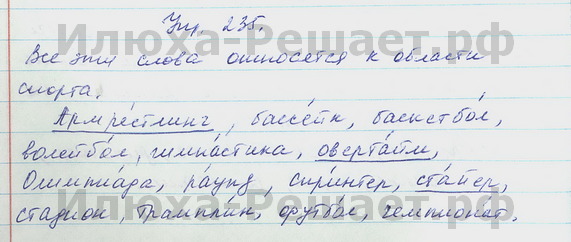 Упр. 235.
Илюха-Решает.рф
Все эти слова относятся к области
спорта.
Армре́стлинг, бассе́йн, баскетбо́л,
волейбо́л, гимна́стика, оверта́йм,
Олимпиа́да, ра́унд, спри́нтер, ста́йер,
стадио́н, трампли́н, футбо́л, чемпиона́т.
Илюха-Решает.рф